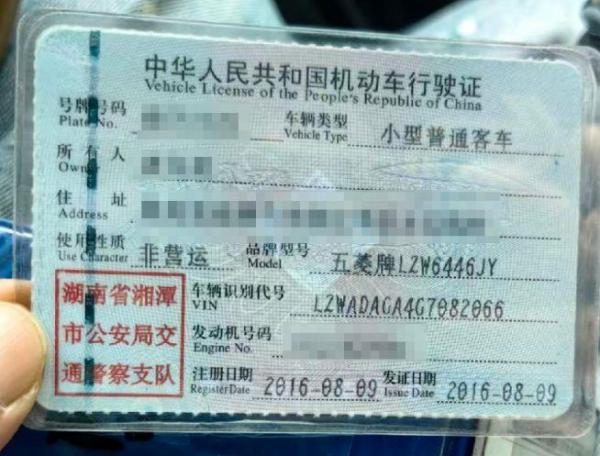 中华人民共和国机动车行驶证
Vehicle License of the People's Republic of China
号牌号码 车辆类型 小型普通客车
Plate No. Vehicle Type
所有人
Owner
住址
Address
使用性质 非营运 品牌型号 五菱牌LZW6446JY
Use Character Model
湖南省湘潭
市公安局交
通警察支队
车辆识别代号 LZWADAGA4G7082066
VIN
发动机号码
Engine No.
注册日期 2016-08-09 发证日期 2016-08-09
Register Date Issue Date